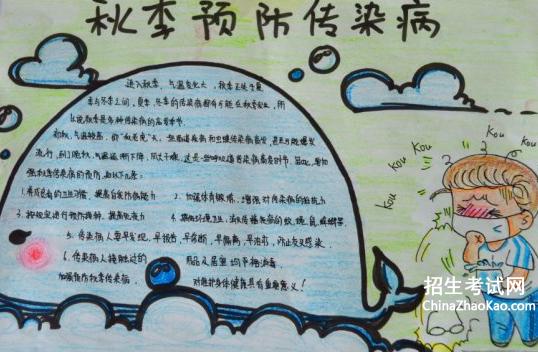 秋季预防传染病
进入秋季，气温变化大，秋季正处于夏
季与冬季之间，夏季、冬季的传染病都有可能在秋季发生，所
以说秋季是多种传染病的高发季节。
流行，到了晚秋，气温逐渐下降，风大干燥，这是一些呼吸道传染病高发时节，因此，要加
强秋季传染病的预防，具体如下几条：
1.养成良好的卫生习惯，提高自我防病能力
2.加强体育锻炼，增强对传染病的抵抗力
3.按规定进行预防接种，提高免疫力
4.搞好环境卫生，消灭传播疾病的蚊、蝇、鼠、蟑螂等
5.传染病人要早发现，早报告，早诊断，早隔离，早治疗，防止交叉感染
6.传染病人接触过的
用品及居室均严格消毒
加强预防秋季传染病，
对维护身体健康具有重要意义！
Kou
Kou
Kou
Kou
Kou
招生考试网
ChinaZhaoKao.com